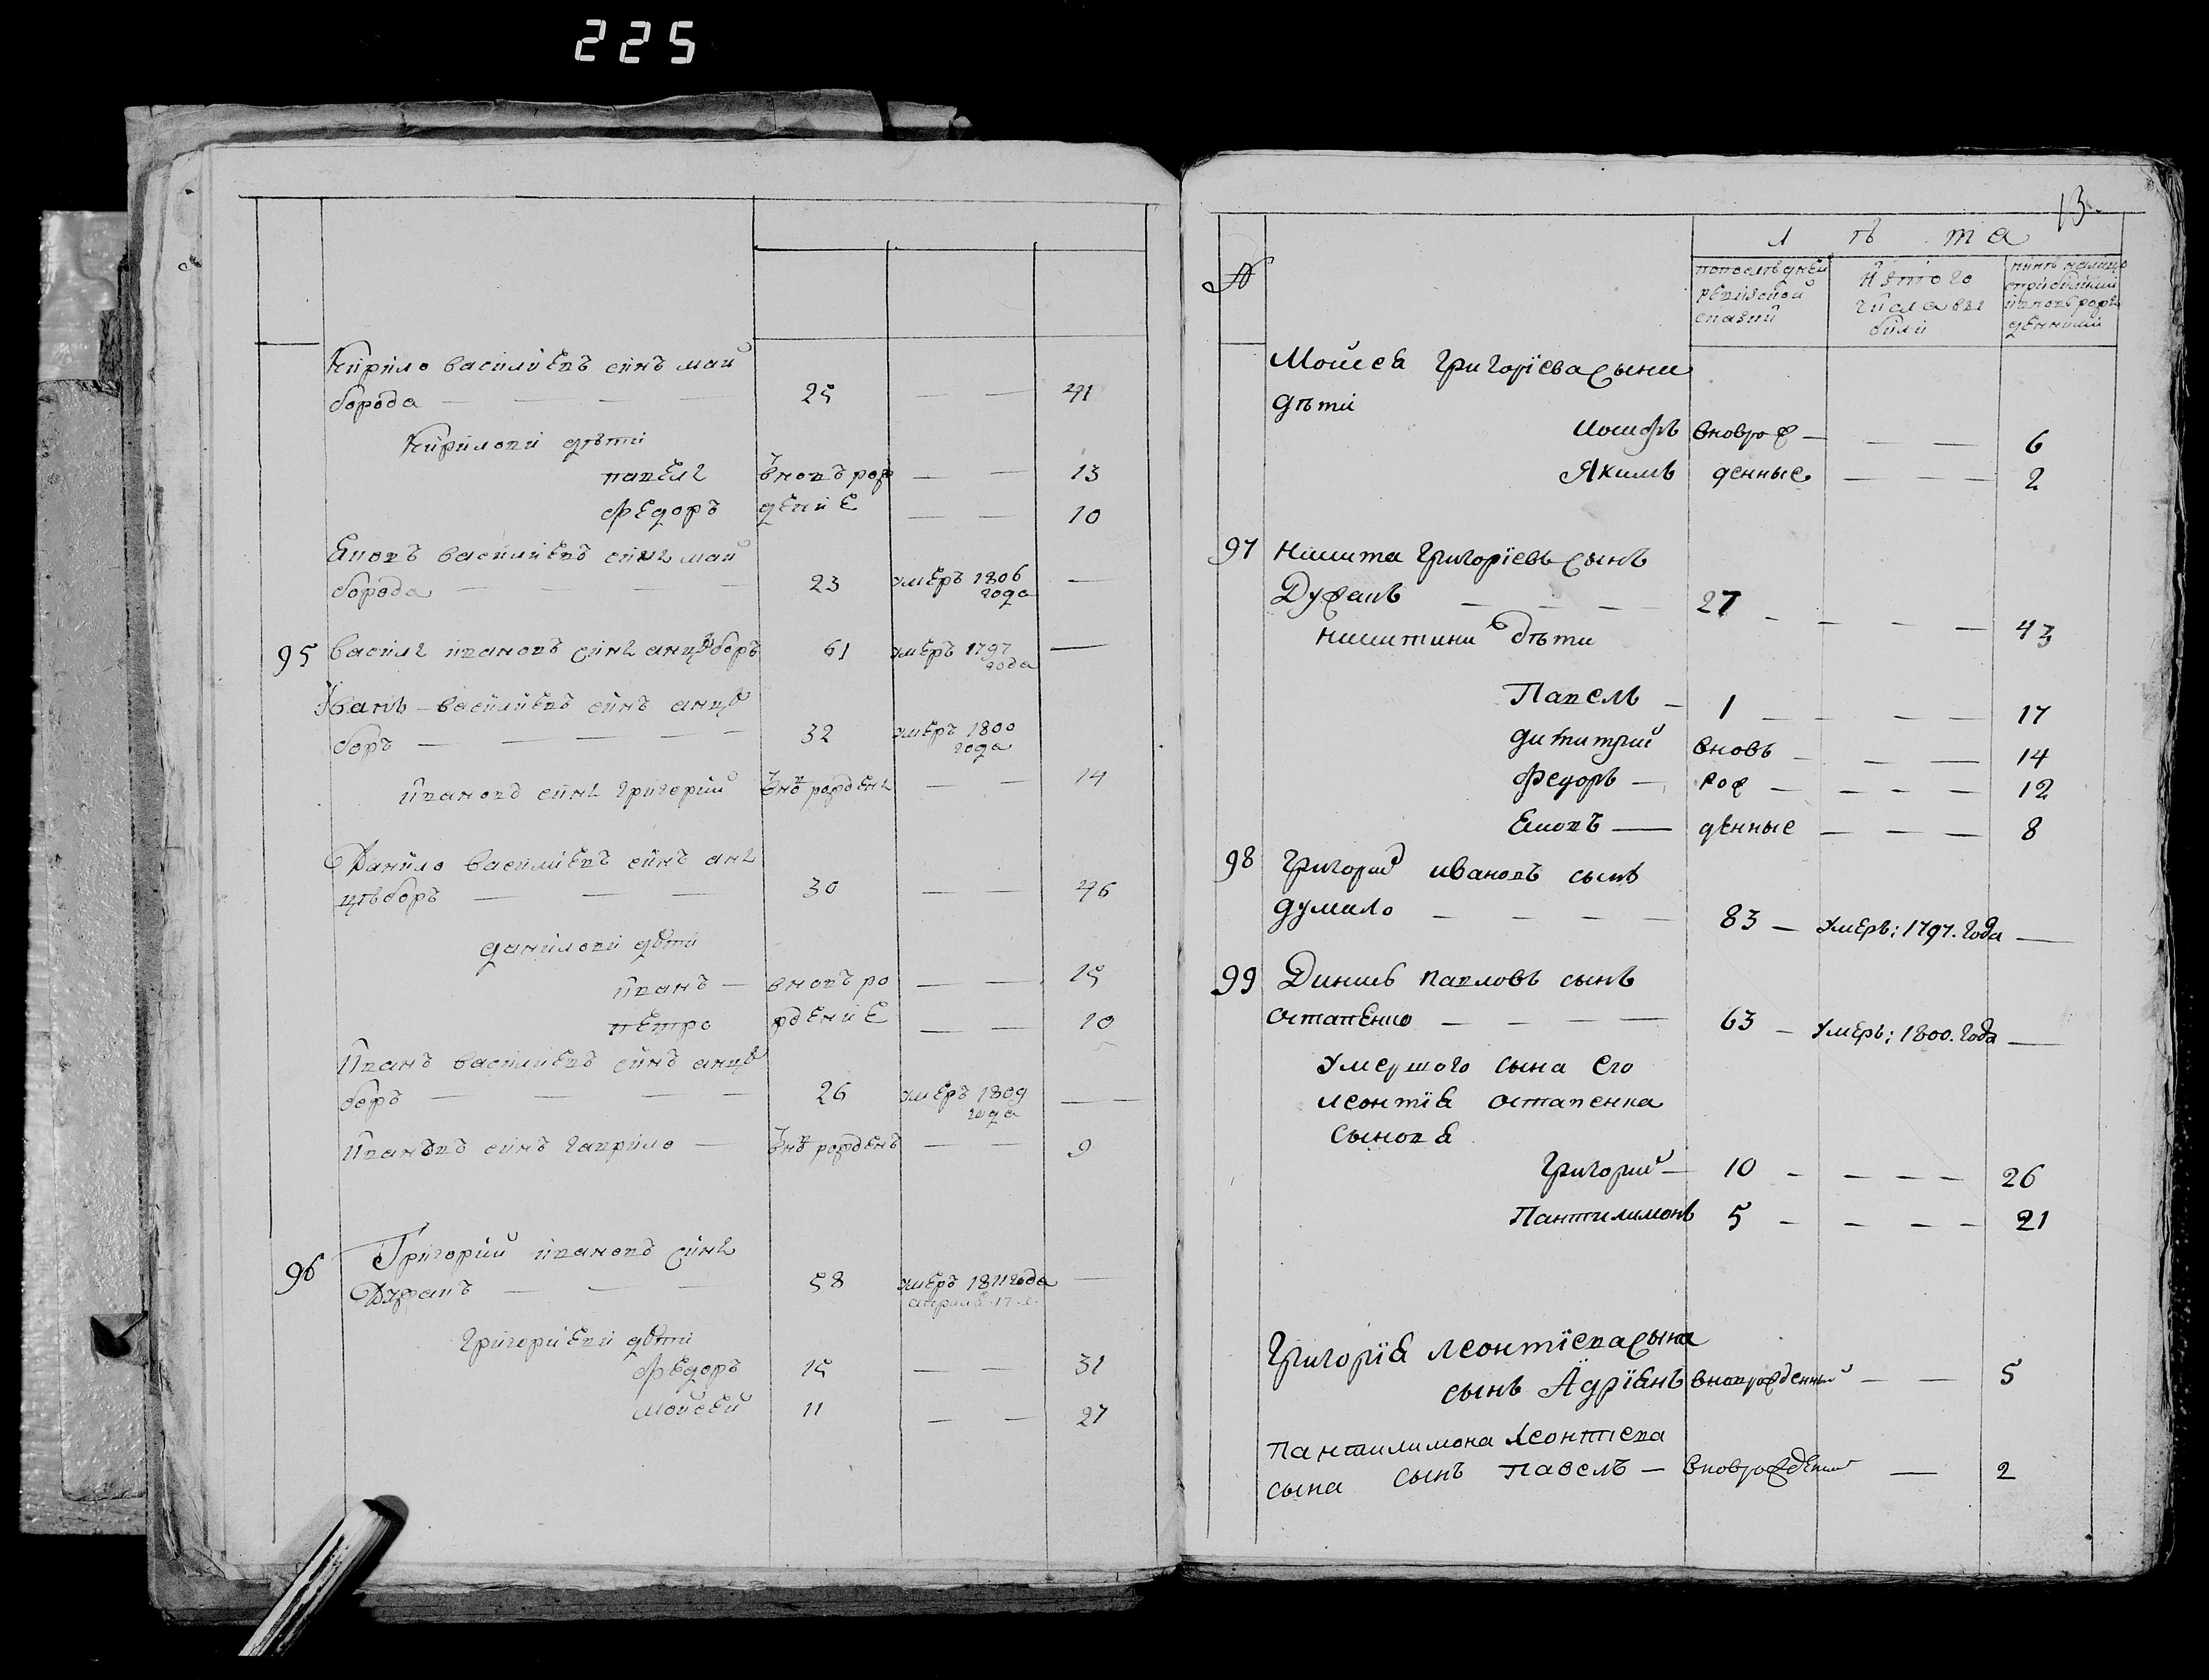 225
Кирило василиевъ синъ май
борода — — — — 25 — — 41
Кирилови дѣти
павелъ вновъ рож — — 13
Федоръ дение — — 10
Яковъ василиевъ синъ май
борода — — — 23 умеръ 1806 года —
95 василъ ивановъ синъ анцыборъ 61 умеръ 1797 года —
Иванъ василиевъ синъ анцы
боръ — — — — 32 умеръ 1800 года
ивановъ синъ григорий вновъ рожденъ — — 14
Данило василиевъ синъ ан
цыборъ — — — 30 — — 46
данилови дѣти
иванъ — вновъ ро — — 15
петро ждение — — 10
Иванъ василиевъ синъ анцы
боръ — — — — 26 умеръ 1809 года — —
Ивановъ синъ гаврило — вновъ рожденъ — — 9
96 Григорий ивановъ синъ
Дужапъ — — — 58 умеръ 1811 года —
априля 17 д.
григориеви дѣти
федоръ 15 — — 31
мойсей 11 — — 27
13
№ лѣта
попослѣдней
ревизской
сказки
Изтого
числа вы
били
Мойсея григорїева сына
дѣти
Иосифъ вноврож — — — 6
Якимъ денные — — — 2
97 Никита григорїевъ сынъ
Дужапъ — — — — 27 — — — — 43
никитини дѣти
Павелъ — 1 — — — — 17
димитрий вновь — — — — 14
федоръ — рож — — — — 12
Яковъ — денные — — — 8
98 Григорий ивановъ сынъ
думало — — — — 83 — умеръ: 1797. года —
99 Динисъ павловъ сынъ
остапенко — — — — 63 — умеръ: 1800. года —
умершого сына его
леонтїя остапенка
сыновя
григорий — 10 — — — — 26
Пантилимонъ 5 — — — — 21
григорїя леонтїева сына
сынъ Адрїянъ вноврожденный — — 5
пантилимона леонтїева
сына сынъ павелъ — вноврожденный — 2